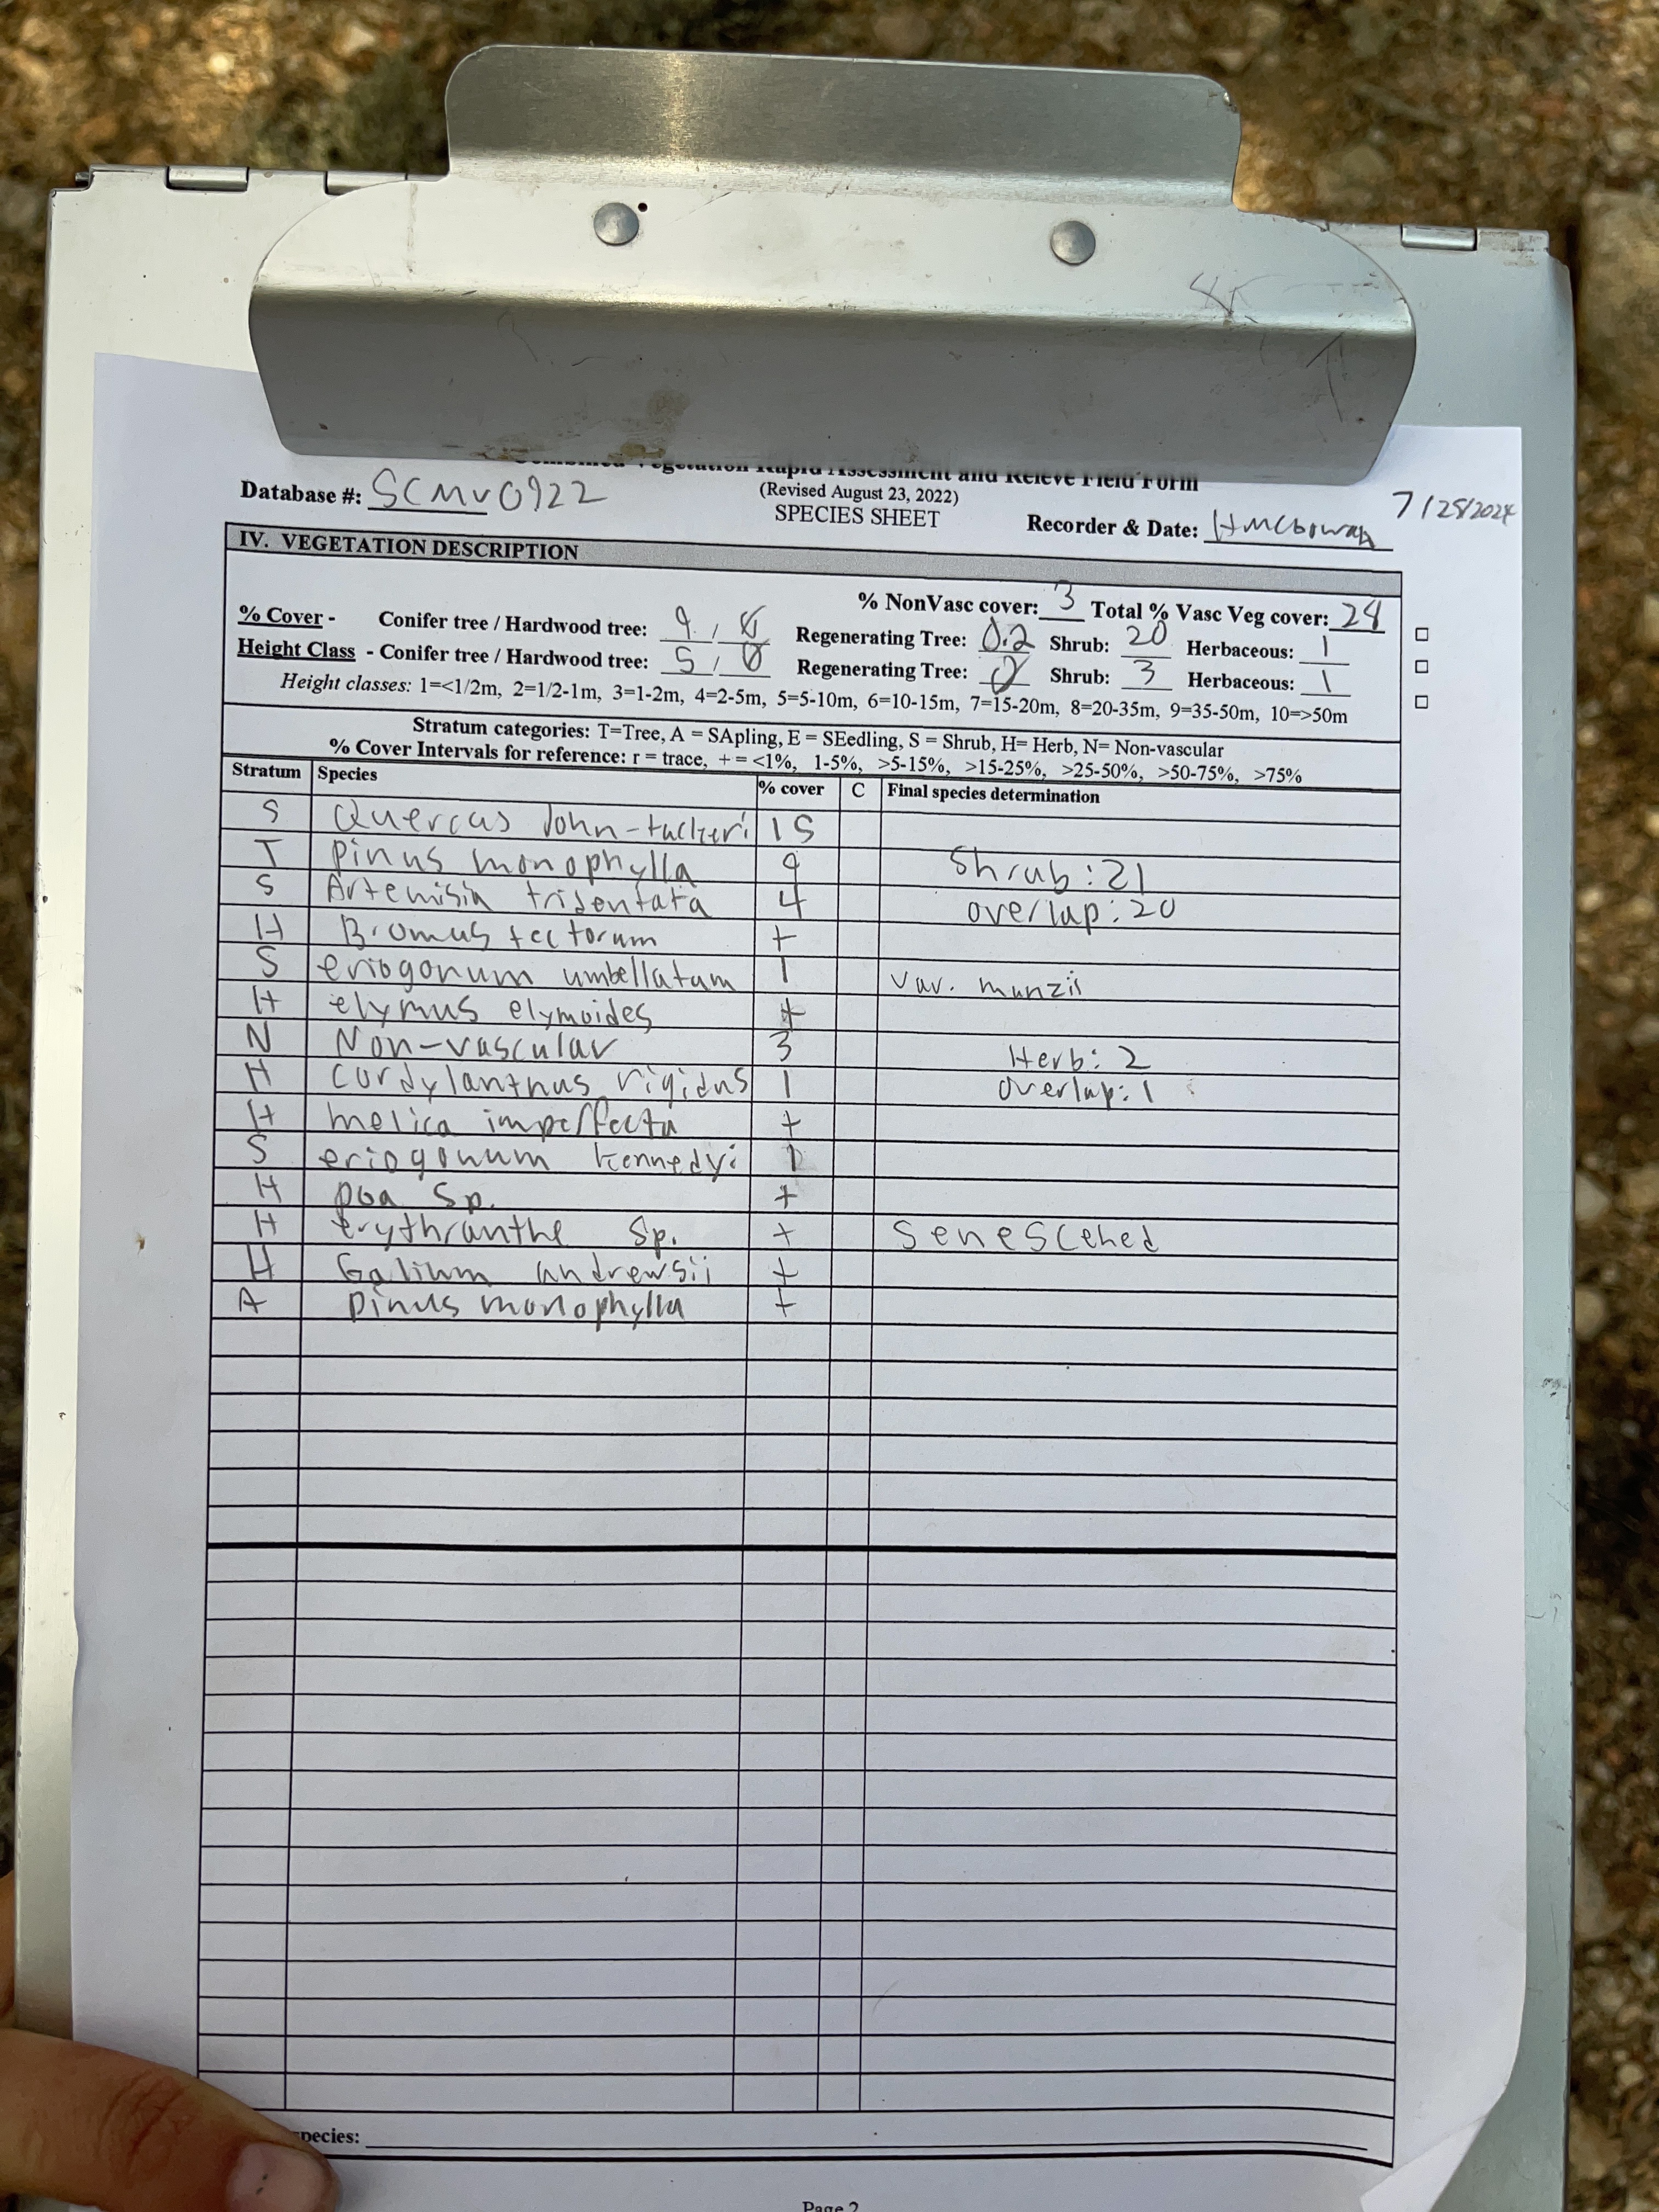 Combined Vegetation Rapid Assessment and Relevé Field Form
(Revised August 23, 2022)
SPECIES SHEET
Database #: SCMV0922
Recorder & Date: HMcGowan 7/25/2024
IV. VEGETATION DESCRIPTION
% NonVasc cover: 3 Total % Vasc Veg cover: 24
% Cover - Conifer tree / Hardwood tree: 9 / 0 Regenerating Tree: 0.2 Shrub: 20 Herbaceous: 1
Height Class - Conifer tree / Hardwood tree: 5 / 0 Regenerating Tree: Shrub: 3 Herbaceous: 1
Height classes: 1=<1/2m, 2=1/2-1m, 3=1-2m, 4=2-5m, 5=5-10m, 6=10-15m, 7=15-20m, 8=20-35m, 9=35-50m, 10=>50m
Stratum categories: T=Tree, A = SApling, E = SEedling, S = Shrub, H= Herb, N= Non-vascular
% Cover Intervals for reference: r = trace, + = <1%, 1-5%, >5-15%, >15-25%, >25-50%, >50-75%, >75%
Stratum Species % cover C Final species determination
S Quercus John-tuckeri 15
T pinus monophylla 9 Shrub: 21
S Artemisia tridentata 4 overlap: 20
H Bromus tectorum +
S eriogonum umbellatum 1 var. munzii
H elymus elymoides +
N Non-vascular 3 Herb: 2
H cordylanthus rigidus 1 overlap: 1
H melica imperfecta +
S eriogonum kennedyi 1
H poa sp. +
H erythranthe sp. + Senescehed
H Galium andrewsii +
A pinus monophylla +
pecies:
Page 2